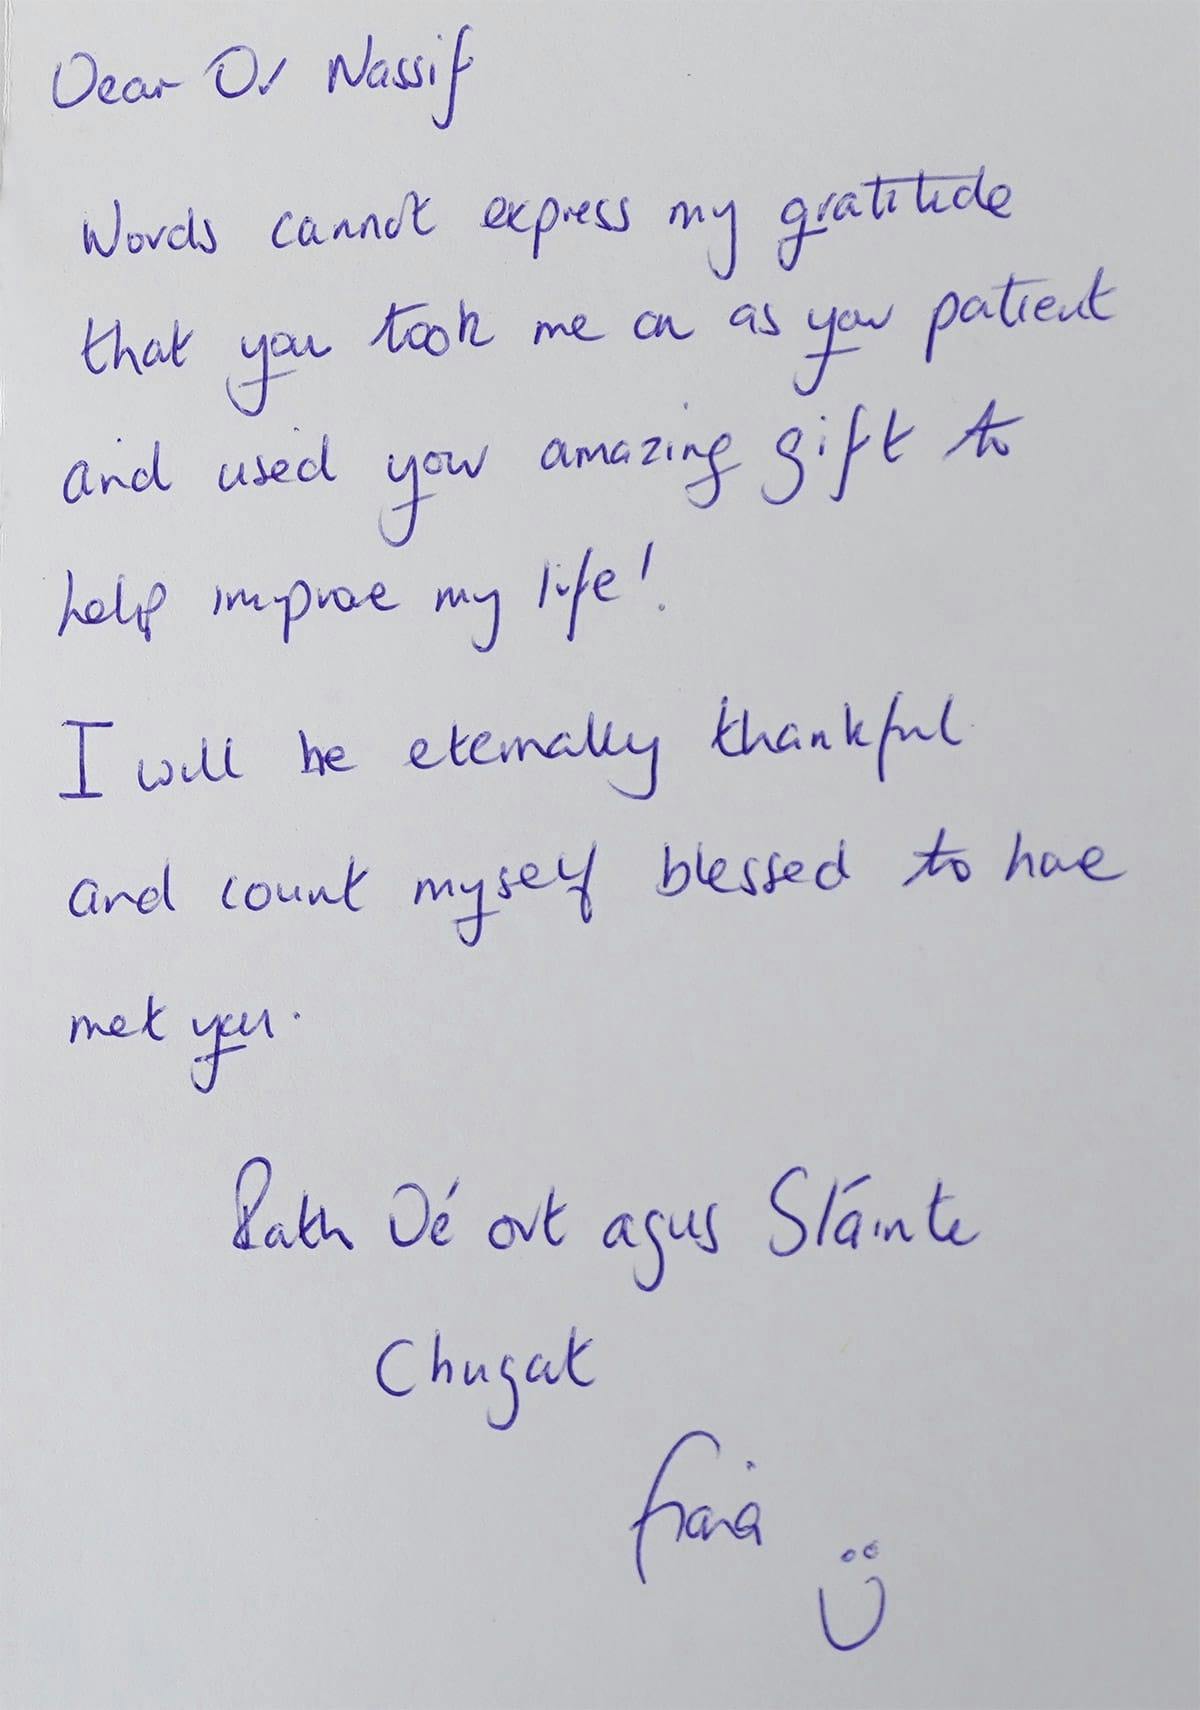 Dear Dr Nassif
Words cannot express my gratitude
that you took me on as your patient
and used your amazing gift to
help improve my life!
I will be eternally thankful
and count myself blessed to have
met you.
Rath Dé ort agus Sláinte
Chugat